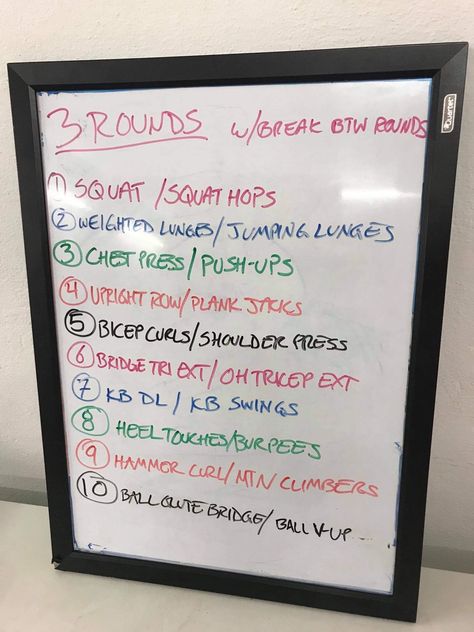 3 ROUNDS w/BREAK BTW ROUNDS
Quartet
① SQUAT /SQUAT HOPS
② WEIGHTED LUNGES/JUMPING LUNGES
③ CHEST PRESS/PUSH-UPS
④ UPRIGHT ROW/PLANK JACKS
⑤ BICEP CURLS/SHOULDER PRESS
⑥ BRIDGE TRI EXT/OH TRICEP EXT
⑦ KB DL / KB SWINGS
⑧ HEEL TOUCHES/BURPEES
⑨ HAMMER CURL/MTN CLIMBERS
⑩ BALL GLUTE BRIDGE/ BALL V-UP